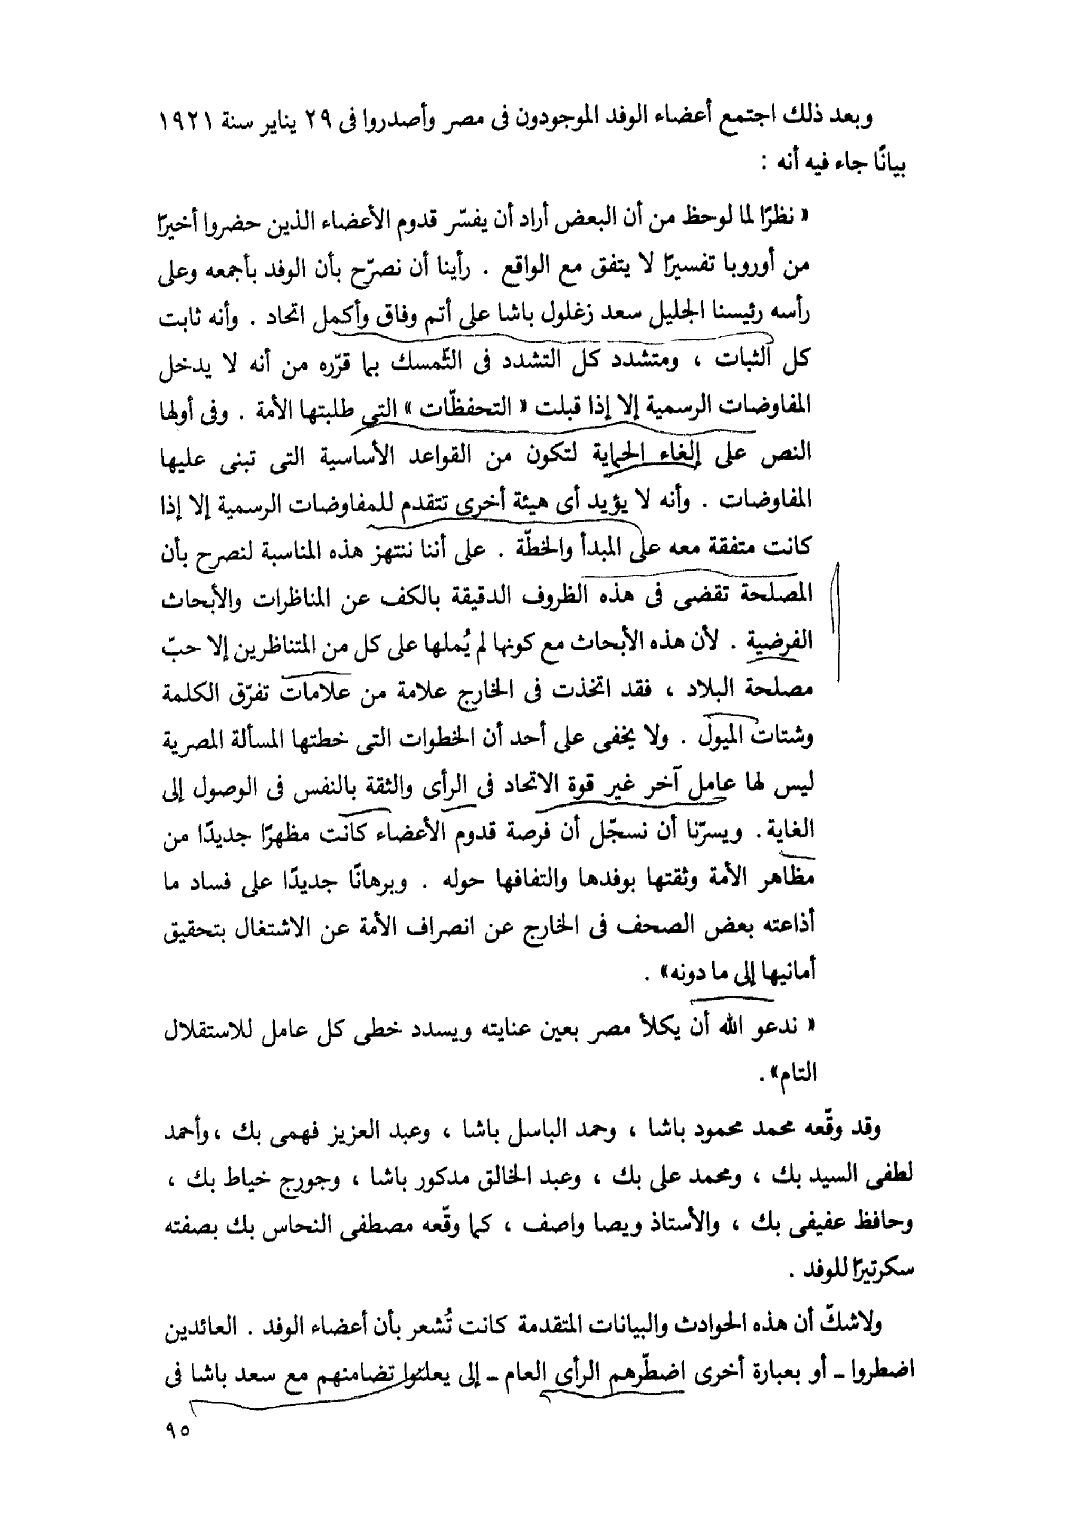 وبعد ذلك اجتمع أعضاء الوفد الموجودون فى مصر وأصدروا فى ٢٩ يناير سنة ١٩٢١
بيانًا جاء فيه أنه :
« نظرًا لما لوحظ من أن البعض أراد أن يفسّر قدوم الأعضاء الذين حضروا أخيرًا
من أوروبا تفسيرًا لا يتفق مع الواقع . رأينا أن نصرّح بأن الوفد بأجمعه وعلى
رأسه رئيسنا الجليل سعد زغلول باشا على أتم وفاق وأكمل اتحاد . وأنه ثابت
كل الثبات ، ومتشدد كل التشدد فى التّمسك بما قرّره من أنه لا يدخل
المفاوضات الرسمية إلا إذا قبلت « التحفظّات » التي طلبتها الأمة . وفى أولها
النص على إلغاء الحماية لتكون من القواعد الأساسية التى تبنى عليها
المفاوضات . وأنه لا يؤيد أى هيئة أخرى تتقدم للمفاوضات الرسمية إلا إذا
كانت متفقة معه على المبدأ والخطّة . على أننا ننتهز هذه المناسبة لنصرح بأن
المصلحة تقضى فى هذه الظروف الدقيقة بالكف عن المناظرات والأبحاث
الفرضية . لأن هذه الأبحاث مع كونها لم يُملها على كل من المتناظرين إلا حبّ
مصلحة البلاد ، فقد اتخذت فى الخارج علامة من علامات تفرّق الكلمة
وشتات الميول . ولا يخفى على أحد أن الخطوات التى خطتها المسألة المصرية
ليس لها عامل آخر غير قوة الاتحاد فى الرأى والثقة بالنفس فى الوصول إلى
الغاية. ويسرّنا أن نسجّل أن فرصة قدوم الأعضاء كانت مظهرًا جديدًا من
مظاهر الأمة وثقتها بوفدها والتفافها حوله . وبرهانًا جديدًا على فساد ما
أذاعته بعض الصحف فى الخارج عن انصراف الأمة عن الاشتغال بتحقيق
أمانيها إلى ما دونه» .
« ندعو الله أن يكلأ مصر بعين عنايته ويسدد خطى كل عامل للاستقلال
التام».
وقد وقّعه محمد محمود باشا ، وحمد الباسل باشا ، وعبد العزيز فهمى بك ،وأحمد
لطفى السيد بك ، ومحمد على بك ، وعبد الخالق مدكور باشا ، وجورج خياط بك ،
وحافظ عفيفى بك ، والأستاذ ويصا واصف ، كما وقّعه مصطفى النحاس بك بصفته
سكرتيرًا للوفد .
ولاشكّ أن هذه الحوادث والبيانات المتقدمة كانت تُشعر بأن أعضاء الوفد . العائدين
اضطروا ـ أو بعبارة أخرى اضطّرهم الرأى العام ـ إلى يعلنوا تضامنهم مع سعد باشا فى
٩٥